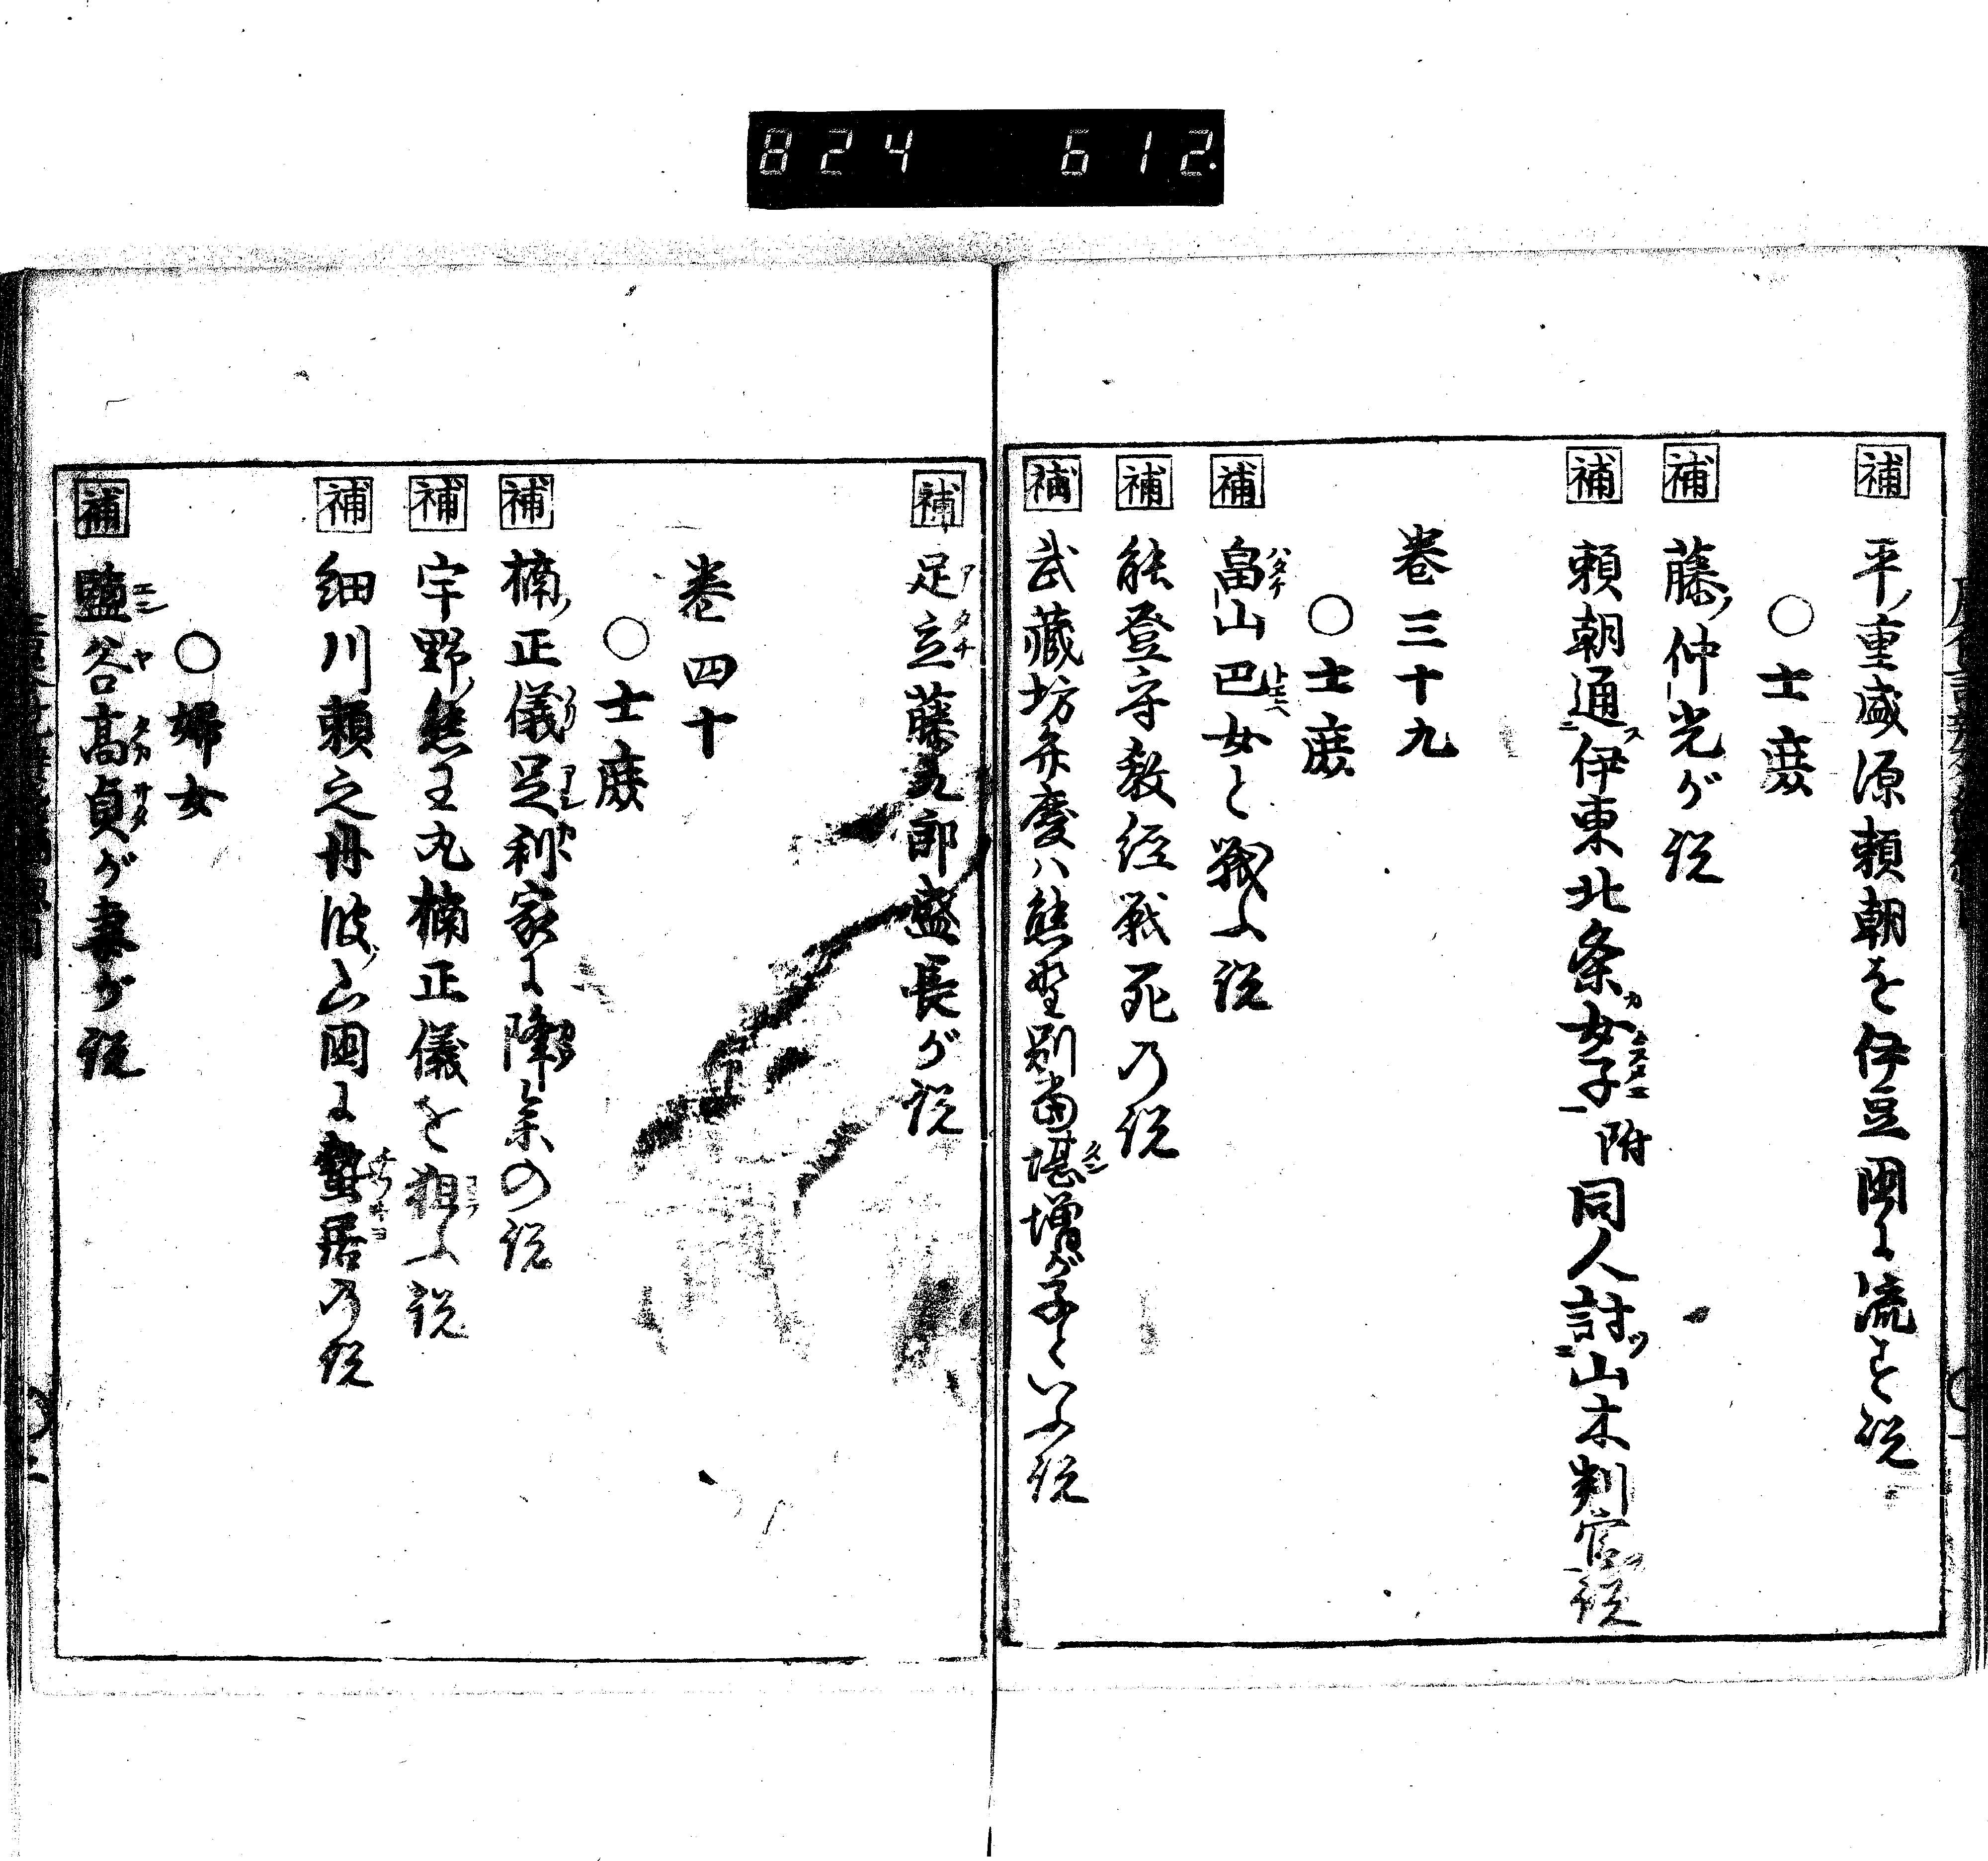 824 612
補 平ノ重盛源頼朝を伊豆国に流す説
○士庶
補 藤ノ仲光が説
補 頼朝通伊東北条女子附同人討山木判官説
巻三十九
○士庶
補 畠山巴女と戦ふ説
補 能登守教経戦死の説
補 武蔵坊弁慶ハ熊野別当堪増が子といふ説
補 足立藤九郎盛長が説
巻四十
○士庶
補 楠ノ正儀足利家に降参の説
補 宇野ノ熊王丸楠正儀を狙ふ説
補 細川頼之丹波ノ山国に蟄居の説
○婦女
補 鹽谷高貞が妻が説